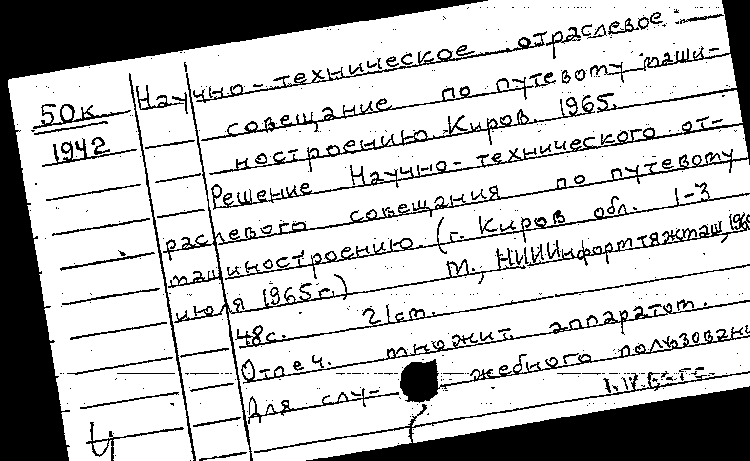 50к
1942
Научно-техническое отраслевое
совещание по путевому маши-
ностроению. Киров. 1965.
Решение Научно-технического от-
раслевого совещания по путевому
машиностроению. (г. Киров обл. 1-3
июля 1965 г.) М., НИИИнформтяжмаш, 196
48с. 21см.
Отпеч. множит. аппаратом.
Для слу- жебного пользовани
Ц